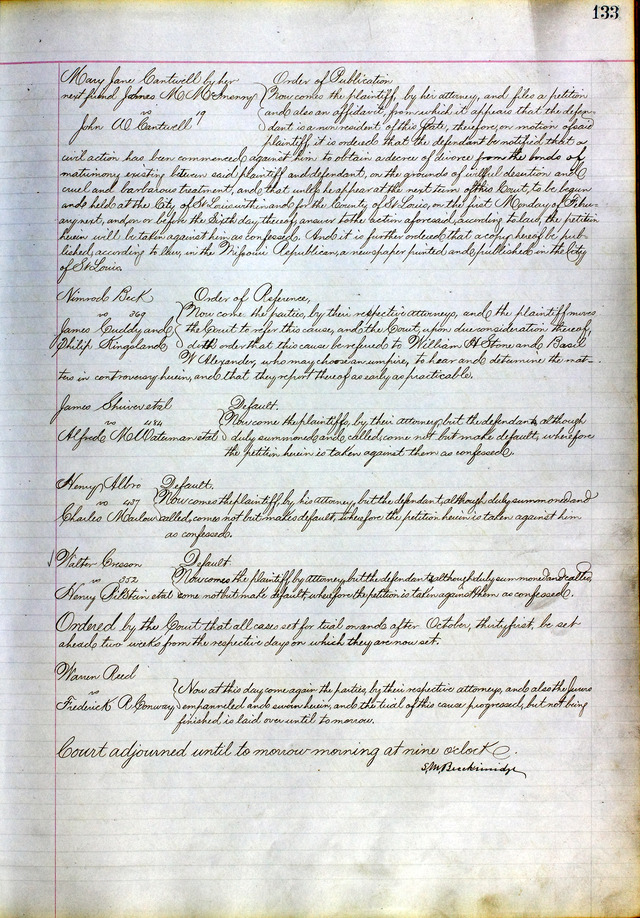 133
Mary Jane Cantwell by her next friend James M McInenny
vs 19
John W Cantwell
Order of Publication
Now comes the plaintiff, by her attorney, and files a petition
and also an affidavit, from which it appears that the defen-
dant is a non resident of this State, therefore, on motion of said
plaintiff it is ordered that the defendant be notified that a
civil action has been commenced against him to obtain a decree of divorce from the bonds of
matrimony existing between said plaintiff and defendant, on the grounds of willful desertion and
cruel and barbarous treatment, and that unless he appear at the next term of this Court, to be begun
and held at the City of St Louis within and for the County of St Louis, on the first Monday of Febru-
ary next, and on or before the Sixth day thereof, answer to the action aforesaid, according to law, the petition
herein will be taken against him as confessed. And it is further ordered that a copy hereof be pub-
lished, according to law, in the Missouri Republican, a newspaper printed and published in the City
of St Louis.
Nimrod Beck
vs 369
James Cuddy and
Philip Kingsland
Order of Reference,
Now come the parties, by their respective attorneys, and the plaintiff moves
the Court to refer this cause, and the Court, upon due consideration thereof,
doth order that this cause be referred to William H Stone and Basil
W Alexander, who may choose an umpire, to hear and determine the mat-
ters in controversy herein, and that they report thereof as early as practicable.
James Shiver et al
vs 484
Alfred M Waterman et al
Default.
Now come the plaintiffs, by their attorney, but the defendants, although
duly summoned and called, come not but make default, wherefore
the petition herein is taken against them as confessed.
Henry Albro
vs 487
Charles Marlow
Default.
Now comes the plaintiff by his attorney, but the defendant, although duly summoned and
called, comes not but makes default, wherefore the petition herein is taken against him
as confessed.
Walter Cresson
vs 352
Henry Bilstein et al
Default
Now comes the plaintiff by attorney, but the defendants although duly summoned and called,
come not but make default, wherefore the petition is taken against them as confessed.
Ordered by the Court that all cases set for trial on and after October, thirty first, be set
ahead two weeks from the respective days on which they are now set.
Warren Reed
vs
Frederick R Conway
Now at this day come again the parties, by their respective attorneys, and also the Jurors
empannelled and sworn herein, and the trial of this cause progressed, but not being
finished is laid over until to morrow.
Court adjourned until to morrow morning at nine oclock.
S. M. Breckinridge